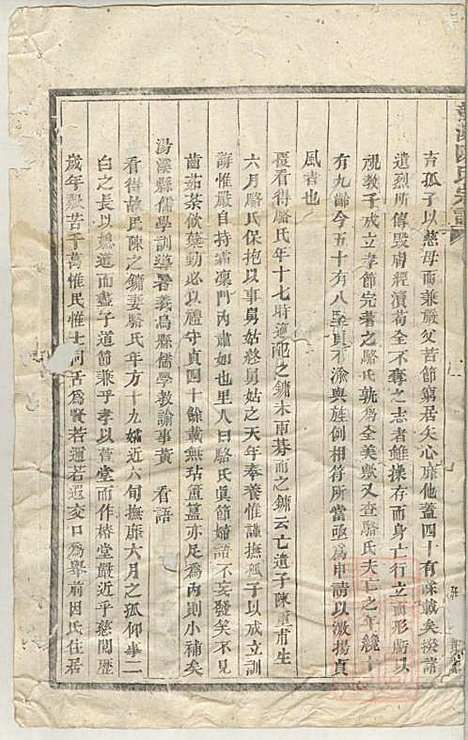 吉孤子以慈母而兼嚴父苦節窮居矢心靡他蓋四十有餘載矣揆諸
遺烈所傳毀膚經瀆荷全不奪之志者雖操存而身亡行立而形都以
視教子成立孝節完著之駱氏孰為全美歟又查駱氏夫亡之年纔十
有九齡今五十有八堅貞不渝與旌例相符所當亟為申請以激揚貞
風者也
覆看得駱氏年十七時適陳之鏞未兩朞而之鏞云亡遺子陳 甫生
六月駱氏保抱以事舅姑終舅姑之天年奉養惟謹撫孤子以成立訓
誨惟嚴自持霜凛門內肅如也里人曰駱氏眞節婦語不妄發笑不見
齒茹荼飲蘖動必以禮守貞四十餘載無玷董薑亦足為內則小補矣
湯溪縣儒學訓導署義烏縣儒學教諭事黃 看語
看得故民陳之鏞妻駱氏年方十九嫠近六旬撫靡六月之孤仰事二
白之長以媳道而盡子道節兼乎孝以萱堂而作椿堂嚴近乎慈閱歷
歲年艱苦千萬惟民惟士同舌為賢若邇若遐交口為舉前因氏住居
陳氏宗譜